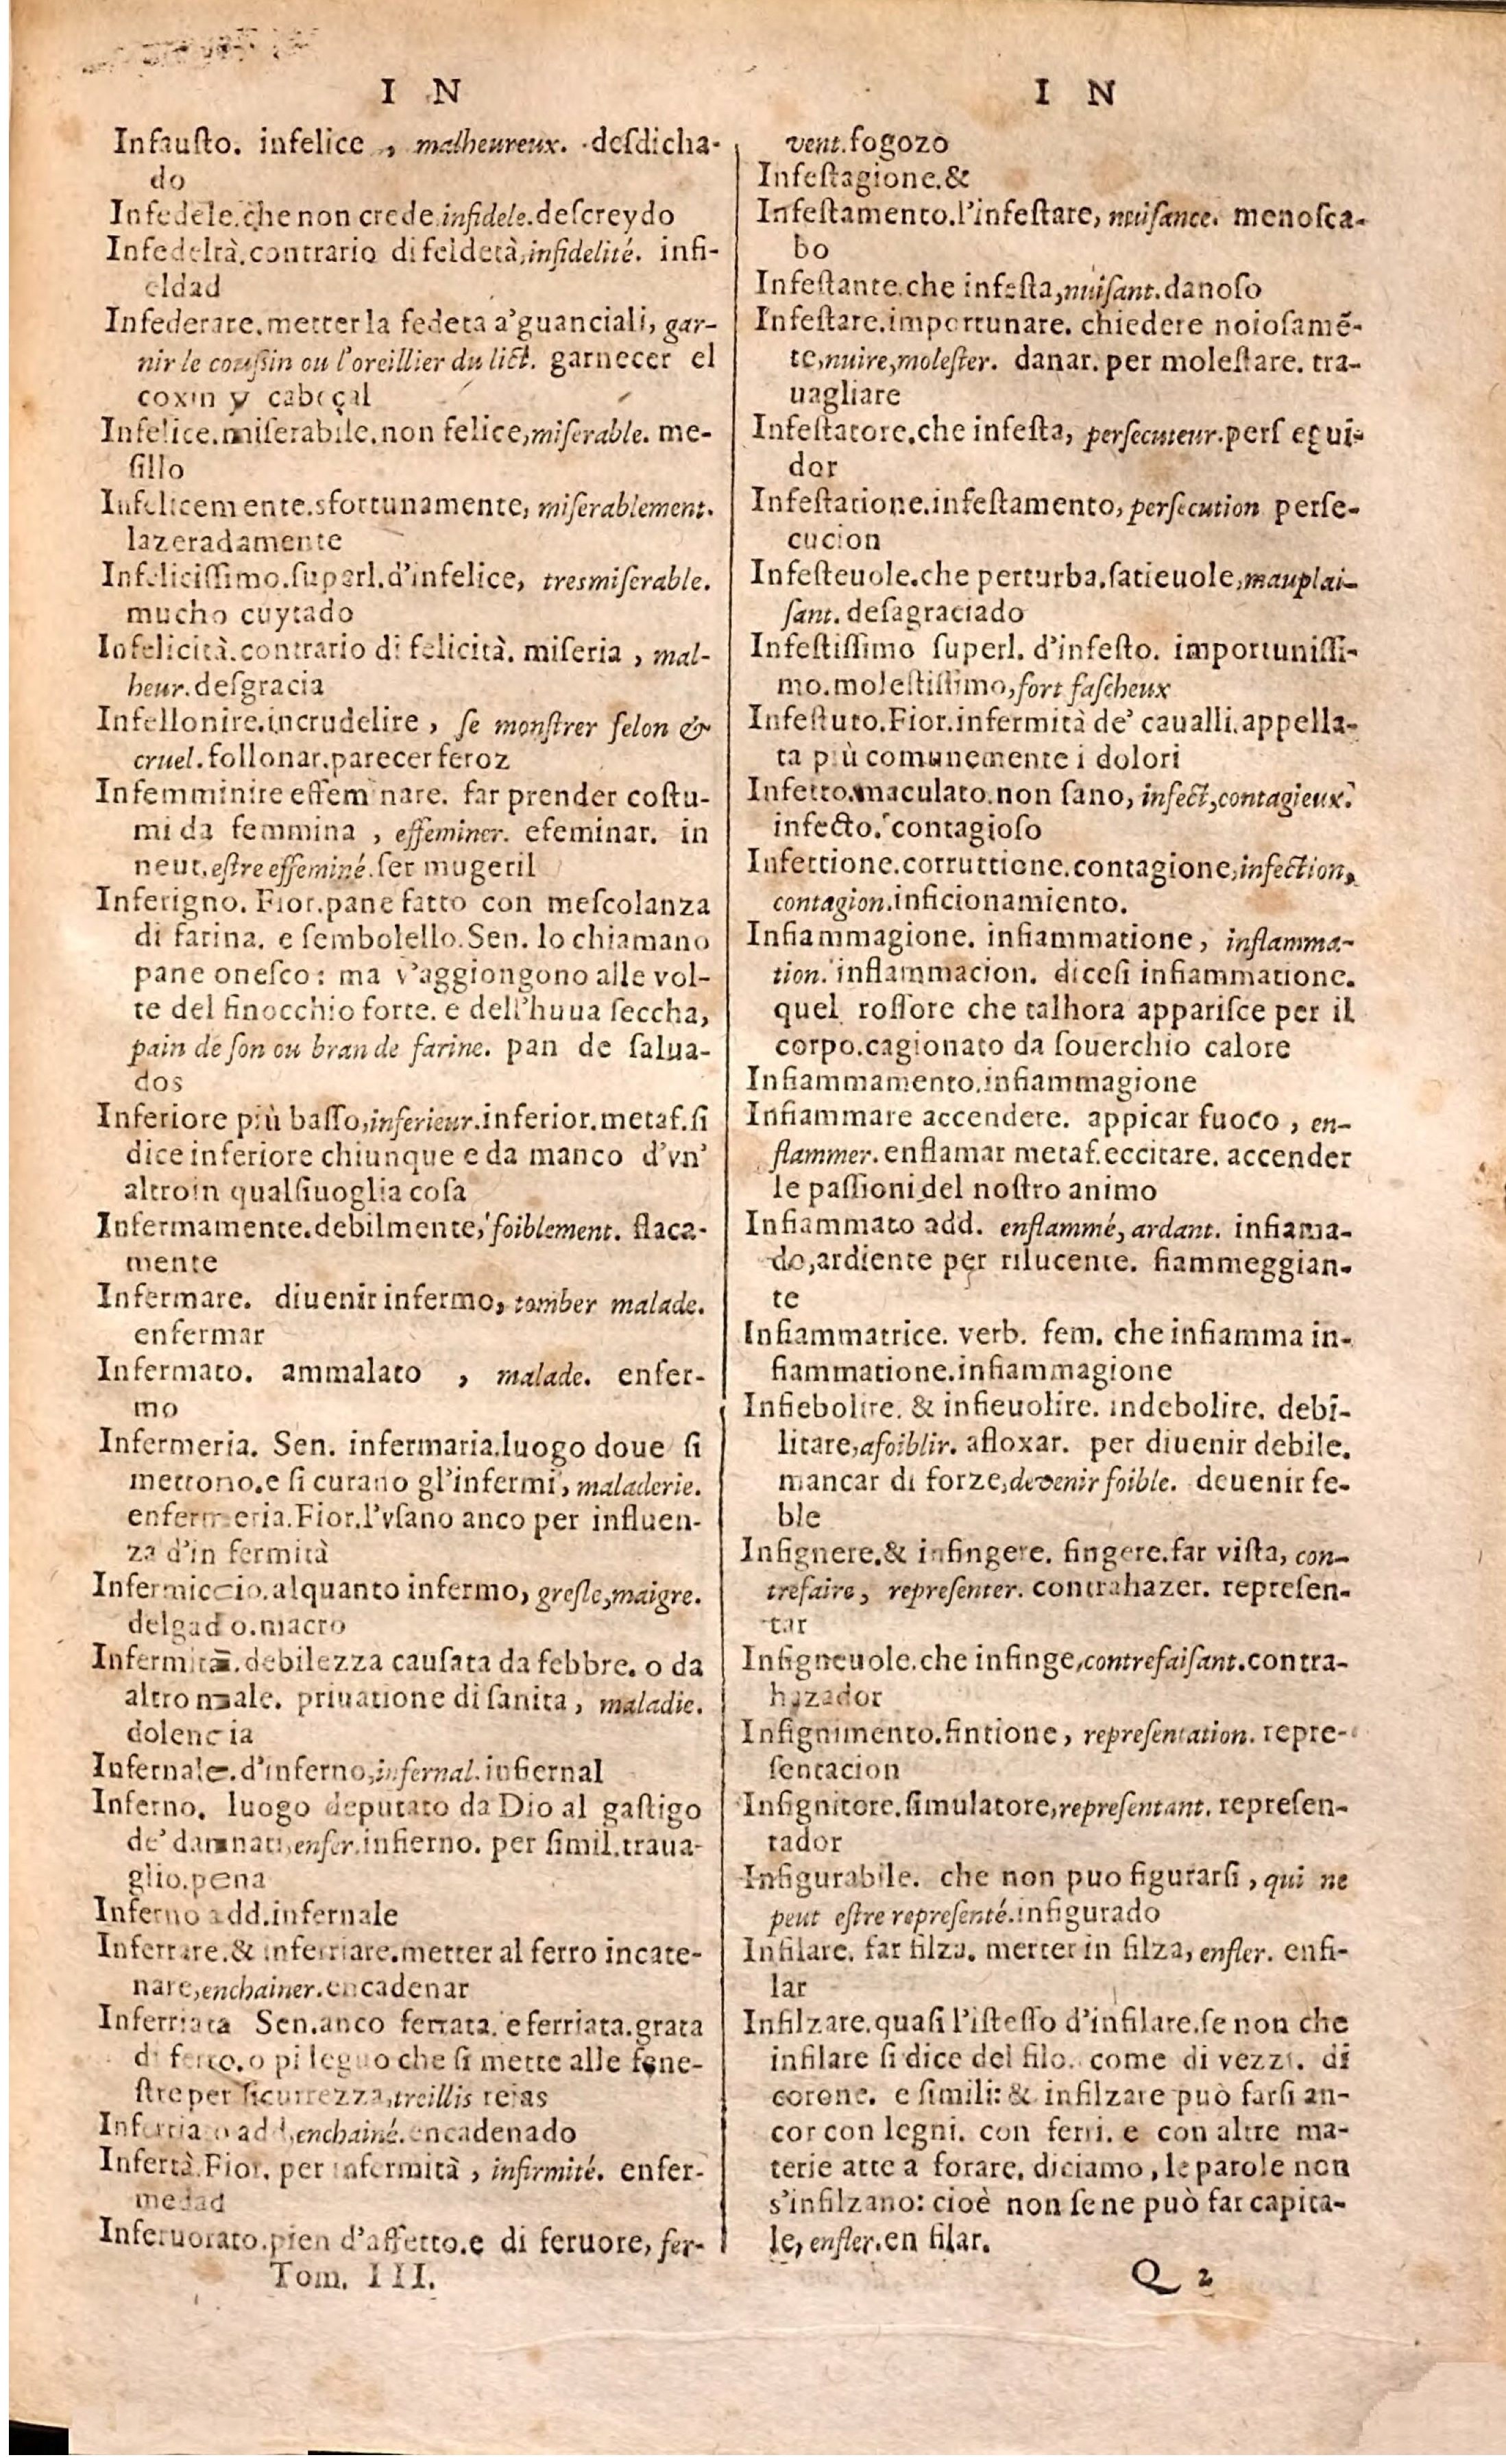 I N
Infausto. infelice, malheureux. desdicha-
do
Infedele. che non crede infidele. descreydo
Infedeltà. contrario di feldetà, infidelité. infi-
eldad
Infederare. metter la federa a' guanciali, gar-
nir le coussin ou l'oreillier du lict. garnecer el
coxin y cabeçal
Infelice. miserabile. non felice, miserable. me-
sillo
Infelicemente. sfortunamente, miserablement.
lazeradamente
Infelicissimo. superl. d'infelice, tresmiserable.
mucho cuytado
Infelicità. contrario di felicità. miseria, mal-
heur. desgracia
Infellonire. incrudelire, se monstrer felon &
cruel. follonar. parecer feroz
Infemminire effeminare. far prender costu-
mi da femmina, effeminer. efeminar. in
neut. estre effeminé. ser mugeril
Inferigno. Fior. pane fatto con mescolanza
di farina. e sembolello. Sen. lo chiamano
pane onesco: ma v'aggiongono alle vol-
te del finocchio forte. e dell'huua seccha,
pain de son ou bran de farine. pan de salua-
dos
Inferiore più basso, inferieur. inferior. metaf. si
dice inferiore chiunque e da manco d'vn'
altroin qualsiuoglia cosa
Infermamente. debilmente, foiblement. flaca-
mente
Infermare. diuenir infermo, tomber malade.
enfermar
Infermato. ammalato, malade. enfer-
mo
Infermeria. Sen. infermaria. luogo doue si
mettono. e si curano gl'infermi, maladerie.
enfermeria. Fior. l'vsano anco per influen-
za d'in fermità
Infermiccio. alquanto infermo, gresle, maigre.
delgado. macro
Infermità. debilezza causata da febbre. o da
altro male. priuatione di sanita, maladie.
dolencia
Infernale. d'inferno, infernal. infiernal
Inferno. luogo deputato da Dio al gastigo
de' damnati, enfer. infierno. per simil. traua-
glio. pena
Inferno add. infernale
Inferrare. & inferriare. metter al ferro incate-
nare, enchainer. encadenar
Inferriata Sen. anco ferrata. e ferriata. grata
di ferro. o pi legno che si mette alle fene-
stre per sicurrezza, treillis rejas
Inferriato add, enchainé. encadenado
Infertà. Fior. per infermità, infirmité. enfer-
medad
Inferuorato. pien d'affetto. e di feruore, fer-
Tom. III.
I N
vent. fogozo
Infestagione. &
Infestamento. l'infestare, nuisance. menosca-
bo
Infestante. che infesta, nuisant. danoso
Infestare. importunare. chiedere noiosamē-
te, nuire, molester. danar. per molestare. tra-
uagliare
Infestatore. che infesta, persecuteur. pers egui-
dor
Infestatione. infestamento, persecution perse-
cucion
Infesteuole. che perturba. satieuole, mauplai-
sant. desagraciado
Infestissimo superl. d'infesto. importunissi-
mo. molestissimo, fort fascheux
Infestuto. Fior. infermità de' caualli. appella-
ta più comunemente i dolori
Infetto. maculato. non sano, infect, contagieux.
infecto. contagioso
Infettione. corruttione. contagione, infection,
contagion. inficionamiento.
Infiammagione. infiammatione, inflamma-
tion. inflammacion. dicesi infiammatione.
quel rossore che talhora apparisce per il
corpo. cagionato da souerchio calore
Infiammamento. infiammagione
Infiammare accendere. appicar fuoco, en-
flammer. enflamar metaf. eccitare. accender
le passioni del nostro animo
Infiammato add. enflammé, ardant. infiama-
do, ardiente per rilucente. fiammeggian-
te
Infiammatrice. verb. fem. che infiamma in-
fiammatione. infiammagione
Infiebolire. & infieuolire. indebolire. debi-
litare, afoiblir. afloxar. per diuenir debile.
mancar di forze, devenir foible. deuenir fe-
ble
Infignere. & infingere. fingere. far vista, con-
trefaire, representer. contrahazer. represen-
tar
Infigneuole. che infinge, contrefaisant. contra-
hazador
Infignimento. fintione, representation. repre-
sentacion
Infignitore. simulatore, representant. represen-
tador
Infigurabile. che non puo figurarsi, qui ne
peut estre representé. infigurado
Infilare. far filza. metter in filza, enfler. enfi-
lar
Infilzare. quasi l'istesso d'infilare. se non che
infilare si dice del filo. come di vezzi. di
corone. e simili: & infilzare può farsi an-
cor con legni. con ferri. e con altre ma-
terie atte a forare. diciamo, le parole non
s'infilzano: cioè non se ne può far capita-
le, enfler. en filar.
Q 2